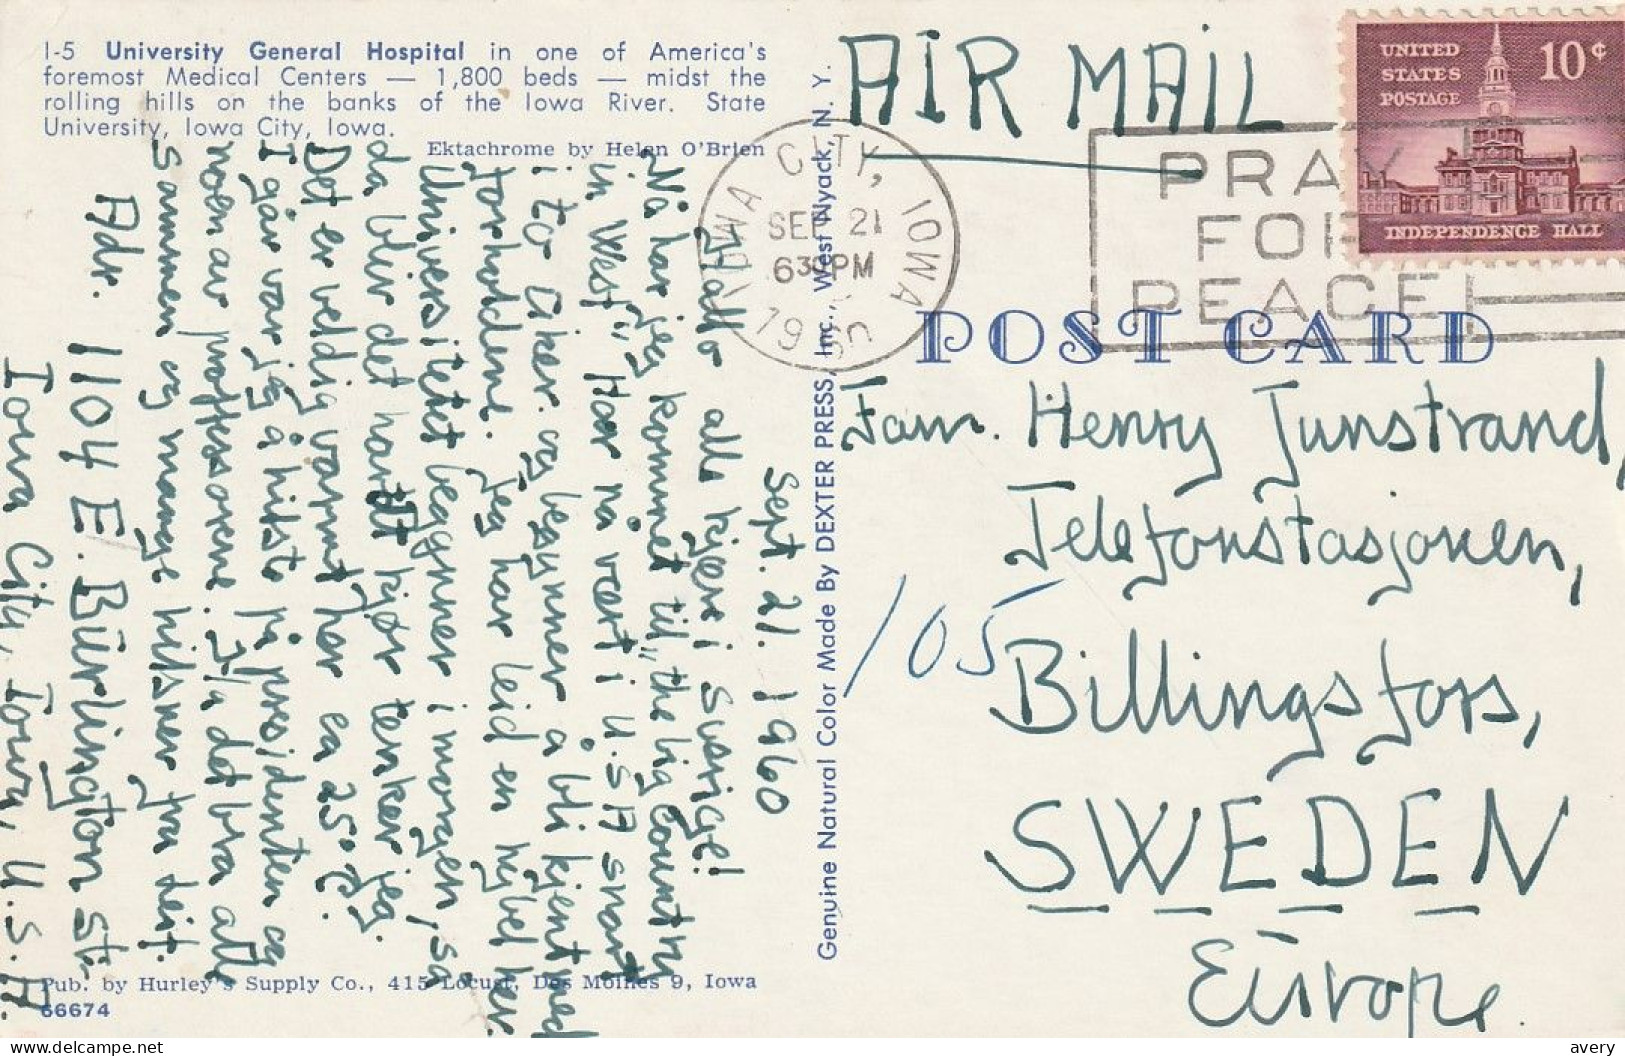 I-5 University General Hospital in one of America's
foremost Medical Centers — 1,800 beds — midst the
rolling hills on the banks of the Iowa River. State
University, Iowa City, Iowa.
Ektachrome by Helen O'Brien
Sept. 21. 1960
Hallo alle kjære i Sverige!
Nå har jeg kommet til "the big country
in West" Har nå vært i U.S.A snart
i to uker. og begynner å bli kjent med
forholdene. Jeg har leid en hybel her.
Universitetet begynner i morgen, så
da blir det hardt kjør tenker jeg.
Det er veldig varmt her ca 25°C.
I går var jeg å hilste på presidenten og
noen av professorene. Ja det bra alle
sammen og mange hilsner fra Leif.
Adr. 1104 E. Burlington str.
Iowa City, Iowa, U.S.A.
Pub. by Hurley's Supply Co., 415 Locust, Des Moines 9, Iowa
66674
Genuine Natural Color Made By DEXTER PRESS, Inc., West Nyack, N. Y.
AIR MAIL
IOWA CITY, IOWA
SEP 21
630 PM
1960
PRAY
FOR
PEACE!
UNITED
STATES
POSTAGE
10¢
INDEPENDENCE HALL
POST CARD
Fam. Henry Junstrand,
Telefonstasjonen,
105
Billingsfors,
SWEDEN
Europe.
delcampe.net
avery